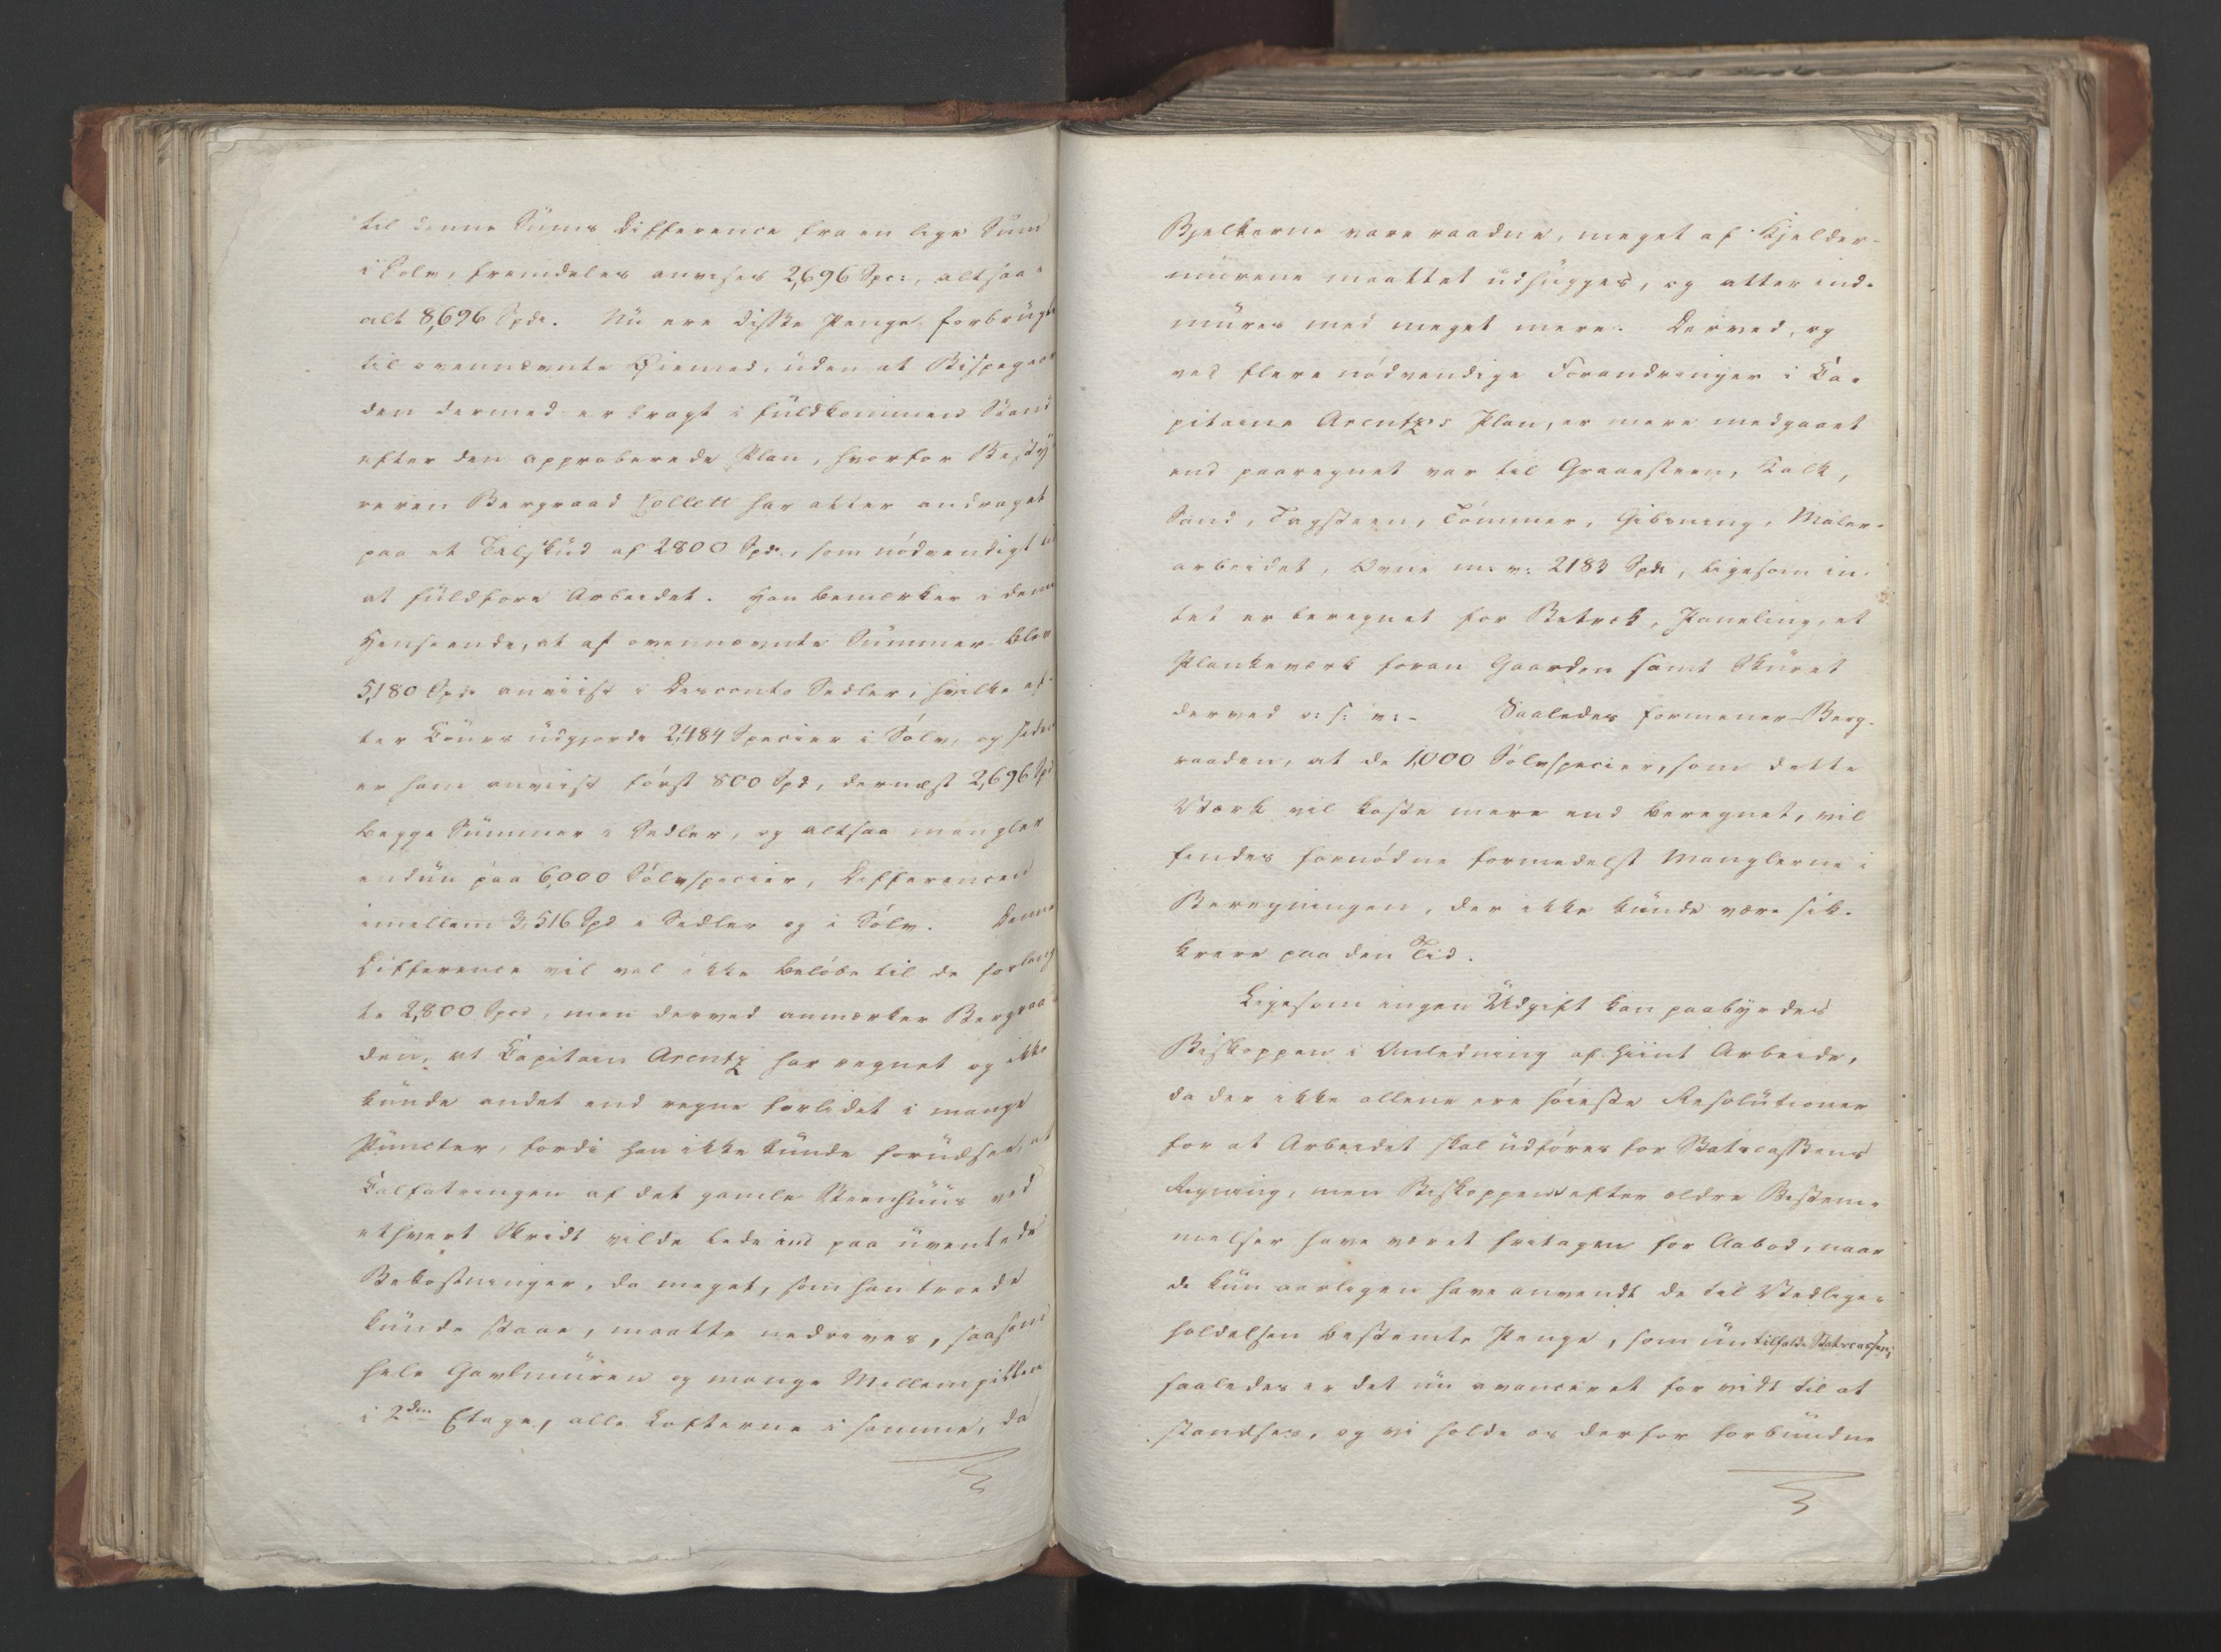 til denne Sums Difference fra en lige Sum
i Sølv, fremdeles anvises 2,696 Spec:, altsaa i
alt 8,696 Spdr. Nu ere disse Penge forbrugte
til ovennævnte Øiemed, uden at Bispegaar
den dermed er bragt i fuldkommen Stand
efter den approberede Plan, hvorfor Besty
reren Bergraad Collett har atter andraget
paa et Tilskud af 2800 Spdr., som nødvendigt til
at fuldføre Arbeidet. Han bemærker i denne
Henseende, at af ovennævnte Summer blev
5,180 Spdr anviist i Disconto Sedler, hvilke ef
ter Cours udgjorde 2,484 Specier i Sølv, og siden
er ham anviist først 800 Spd, dernæst 2,696 Spd
begge Summer i Sedler, og altsaa mangler
endnu paa 6,000 Sølvspecier, Differencen
imellem 3,516 Spd i Sedler og i Sølv. Denne
Difference vil vel ikke beløbe til de forlang
te 2,800 Spd, men derved anmærker Bergraa
den, at Capitain Arentz har regnet og ikke
kunde andet end regne forlidet i mange
Puncter, fordi han ikke kunde forudsee, at
Calfatringen af det gamle Steenhuus ved
ethvert Skridt vilde lede ind paa uventede
Bekostninger, da meget, som han troede
kunde staae, maatte nedrives, saasom
hele Gavlmuren og mange Mellempiller
i 2den Etage, alle Lofterne i samme, da
Bjelkerne vare raadne, meget af Kjelder-
murene maattet udhugges, og atter ind-
mures med meget mere. Derved, og
ved flere nødvendige Forandringer i Ca-
pitaine Arentz's Plan, er mere medgaaet
end paaregnet var til Graaesteen, Kalk,
Sand, Tagsteen, Tømmer, Gibsning, Maler-
arbeidet, Ovne m: v: 2183 Spdr, ligesom in-
tet er beregnet for Betræk, Paneling, et
Plankeværk foran Gaarden samt Skuret
derved o: s: v:- Saaledes formener Berg-
raaden, at de 1,000 Sølvspecier, som dette
Værk vil koste mere end beregnet, vil
findes fornødne formedelst Manglerne i
Beregningen, der ikke kunde være sik-
krere paa den Tid.
Ligesom ingen Udgift kan paabyrdes
Biskoppen i Anledning af hiint Arbeide,
da der ikke allene ere høieste Resolutioner
for at Arbeidet skal udføres for Statscassens
Regning, men Biskoppen efter ældre Bestem-
melser have været fritagen for Aabod, naar
de kun aarligen have anvendt de til Vedlige-
holdelsen bestemte Penge, som nu tilfalde Statscassen;
saaledes er det nu avanceret for vidt til at
standses, og vi holde os derfor forbundne